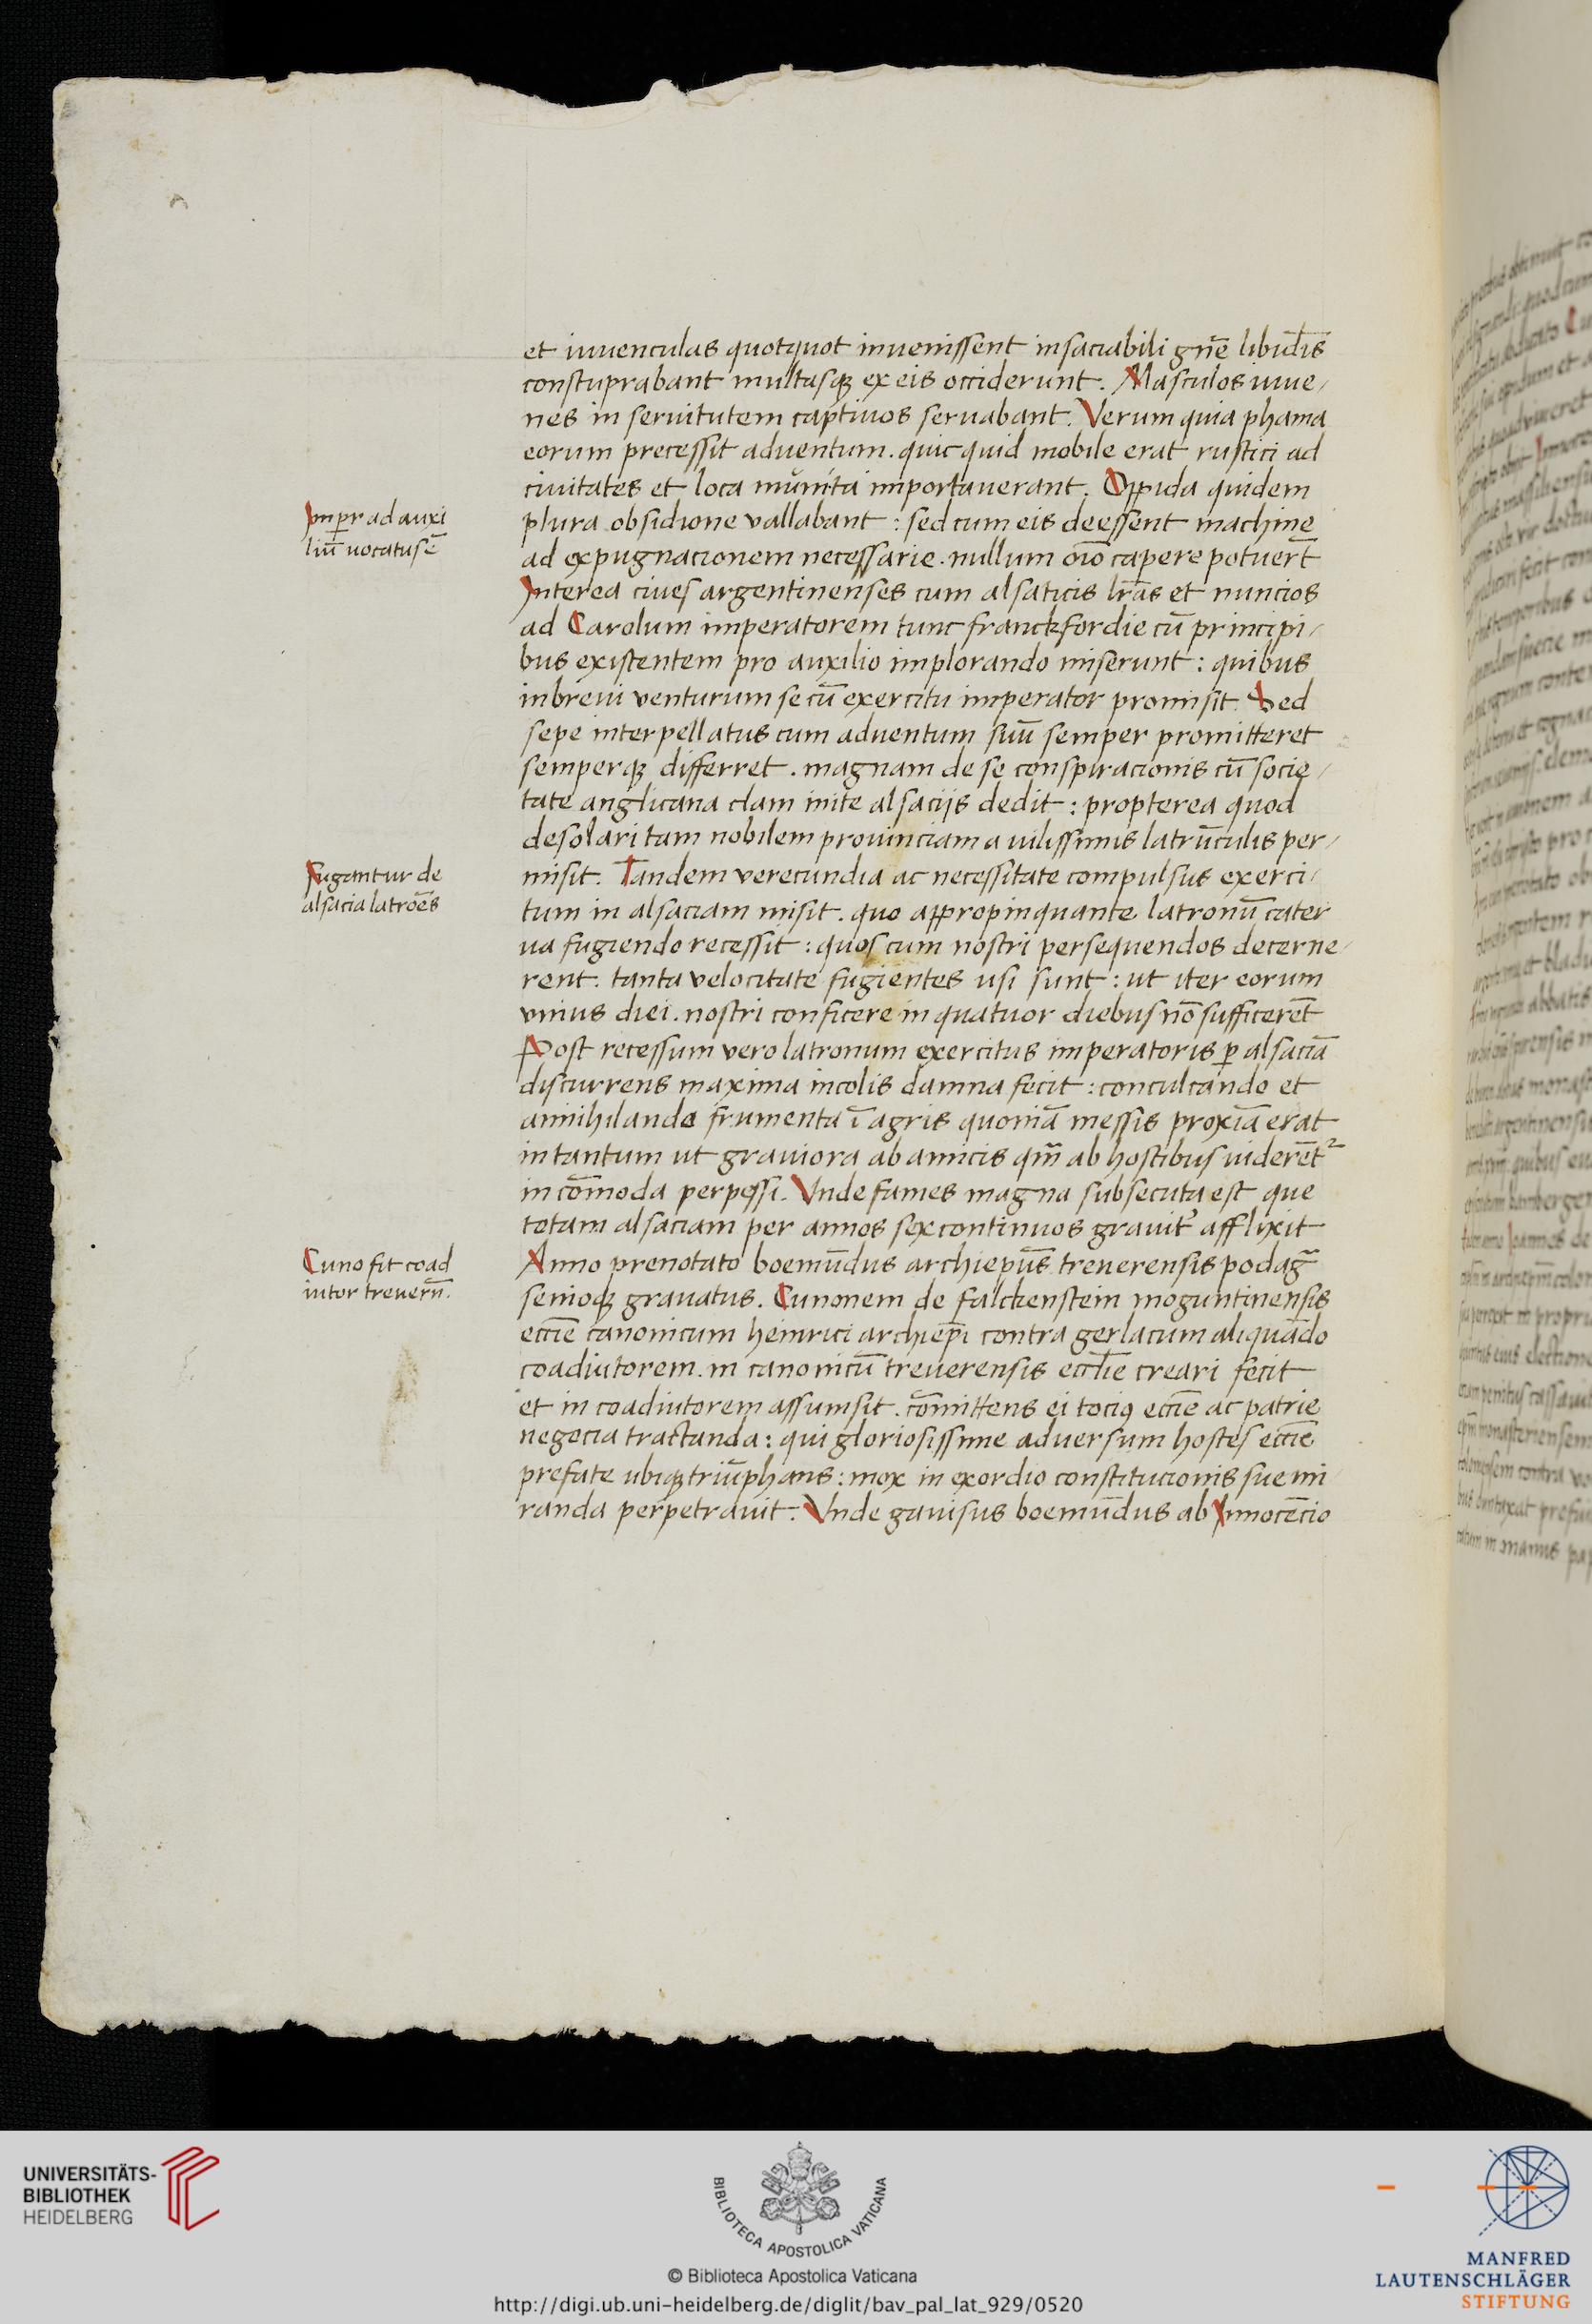 et iuuenculas quotquot inuenissent insaciabili gn̄e libid̄is
constuprabant multasqꝫ ex eis occiderunt. Masculos iuue/
nes in seruitutem captiuos seruabant. Verum quia phama
eorum precessit aduentum. quicquid mobile erat rustici ad
ciuitates et loca munita importauerant. Oppida quidem
plura obsidione vallabant : sed cum eis deessent machine
ad expugnacionem necessarie. nullum oīo capere potuerūt
Interea ciues argentinenses cum alsaticis lr̄as et nuncios
ad Carolum imperatorem tunc franckfordie cū principi/
bus existentem pro auxilio implorando miserunt : quibus
in breui venturum se cū exercitu imperator promisit. Sed
sepe interpellatus cum aduentum suū semper promitteret
semperqꝫ differret. magnam de se conspiracionis cū socie/
tate anglicana clam inite alsacijs dedit : propterea quod
desolari tam nobilem prouinciam a uilissimis latrūculis per/
misit. Tandem verecundia ac necessitate compulsus exerci/
tum in alsaciam misit. quo appropinquante latronū cater
ua fugiendo recessit : quos cum nostri persequendos decerne/
rent. tanta velocitate fugientes usi sunt : ut iter eorum
vnius diei. nostri conficere in quatuor diebus nō sufficerēt
Post recessum vero latronum exercitus imperatoris ꝑ alsaciā
discurrens maxima incolis damna fecit : conculcando et
annihilando frumenta ī agris quoniā messis proxīa erat
in tantum ut grauiora ab amicis qm̄ ab hostibus uiderēt᷑
incōmoda perpessi. Vnde fames magna subsecuta est que
totam alsaciam per annos sex continuos grauit᷑ afflixit
Anno prenotato boemūdus archiepūs treuerensis podaḡ
senioqꝫ grauatus. Cunonem de falckenstein moguntinensis
eccīe canonicum heinrici archiep̄i contra gerlacum aliquādo
coadiutorem. in canonicū treuerensis eccl̄ie creari fecit
et in coadiutorem assumsit. cōmittens ei tociꝰ eccīe ac patrie
negocia tractanda : qui gloriosissime aduersum hostes eccīe
prefate ubiqꝫ triūphans : mox in exordio constitucionis sue mi
randa perpetrauit. Vnde gauisus boemūdus ab Innocēcio
Imꝑr ad auxi
liū uocatus ē
Fugantur de
alsacia latrōes
Cuno fit coad
iutor treuerñ.
UNIVERSITÄTS-
BIBLIOTHEK
HEIDELBERG
BIBLIOTECA APOSTOLICA VATICANA
© Biblioteca Apostolica Vaticana
http://digi.ub.uni-heidelberg.de/diglit/bav_pal_lat_929/0520
MANFRED
LAUTENSCHLÄGER
STIFTUNG